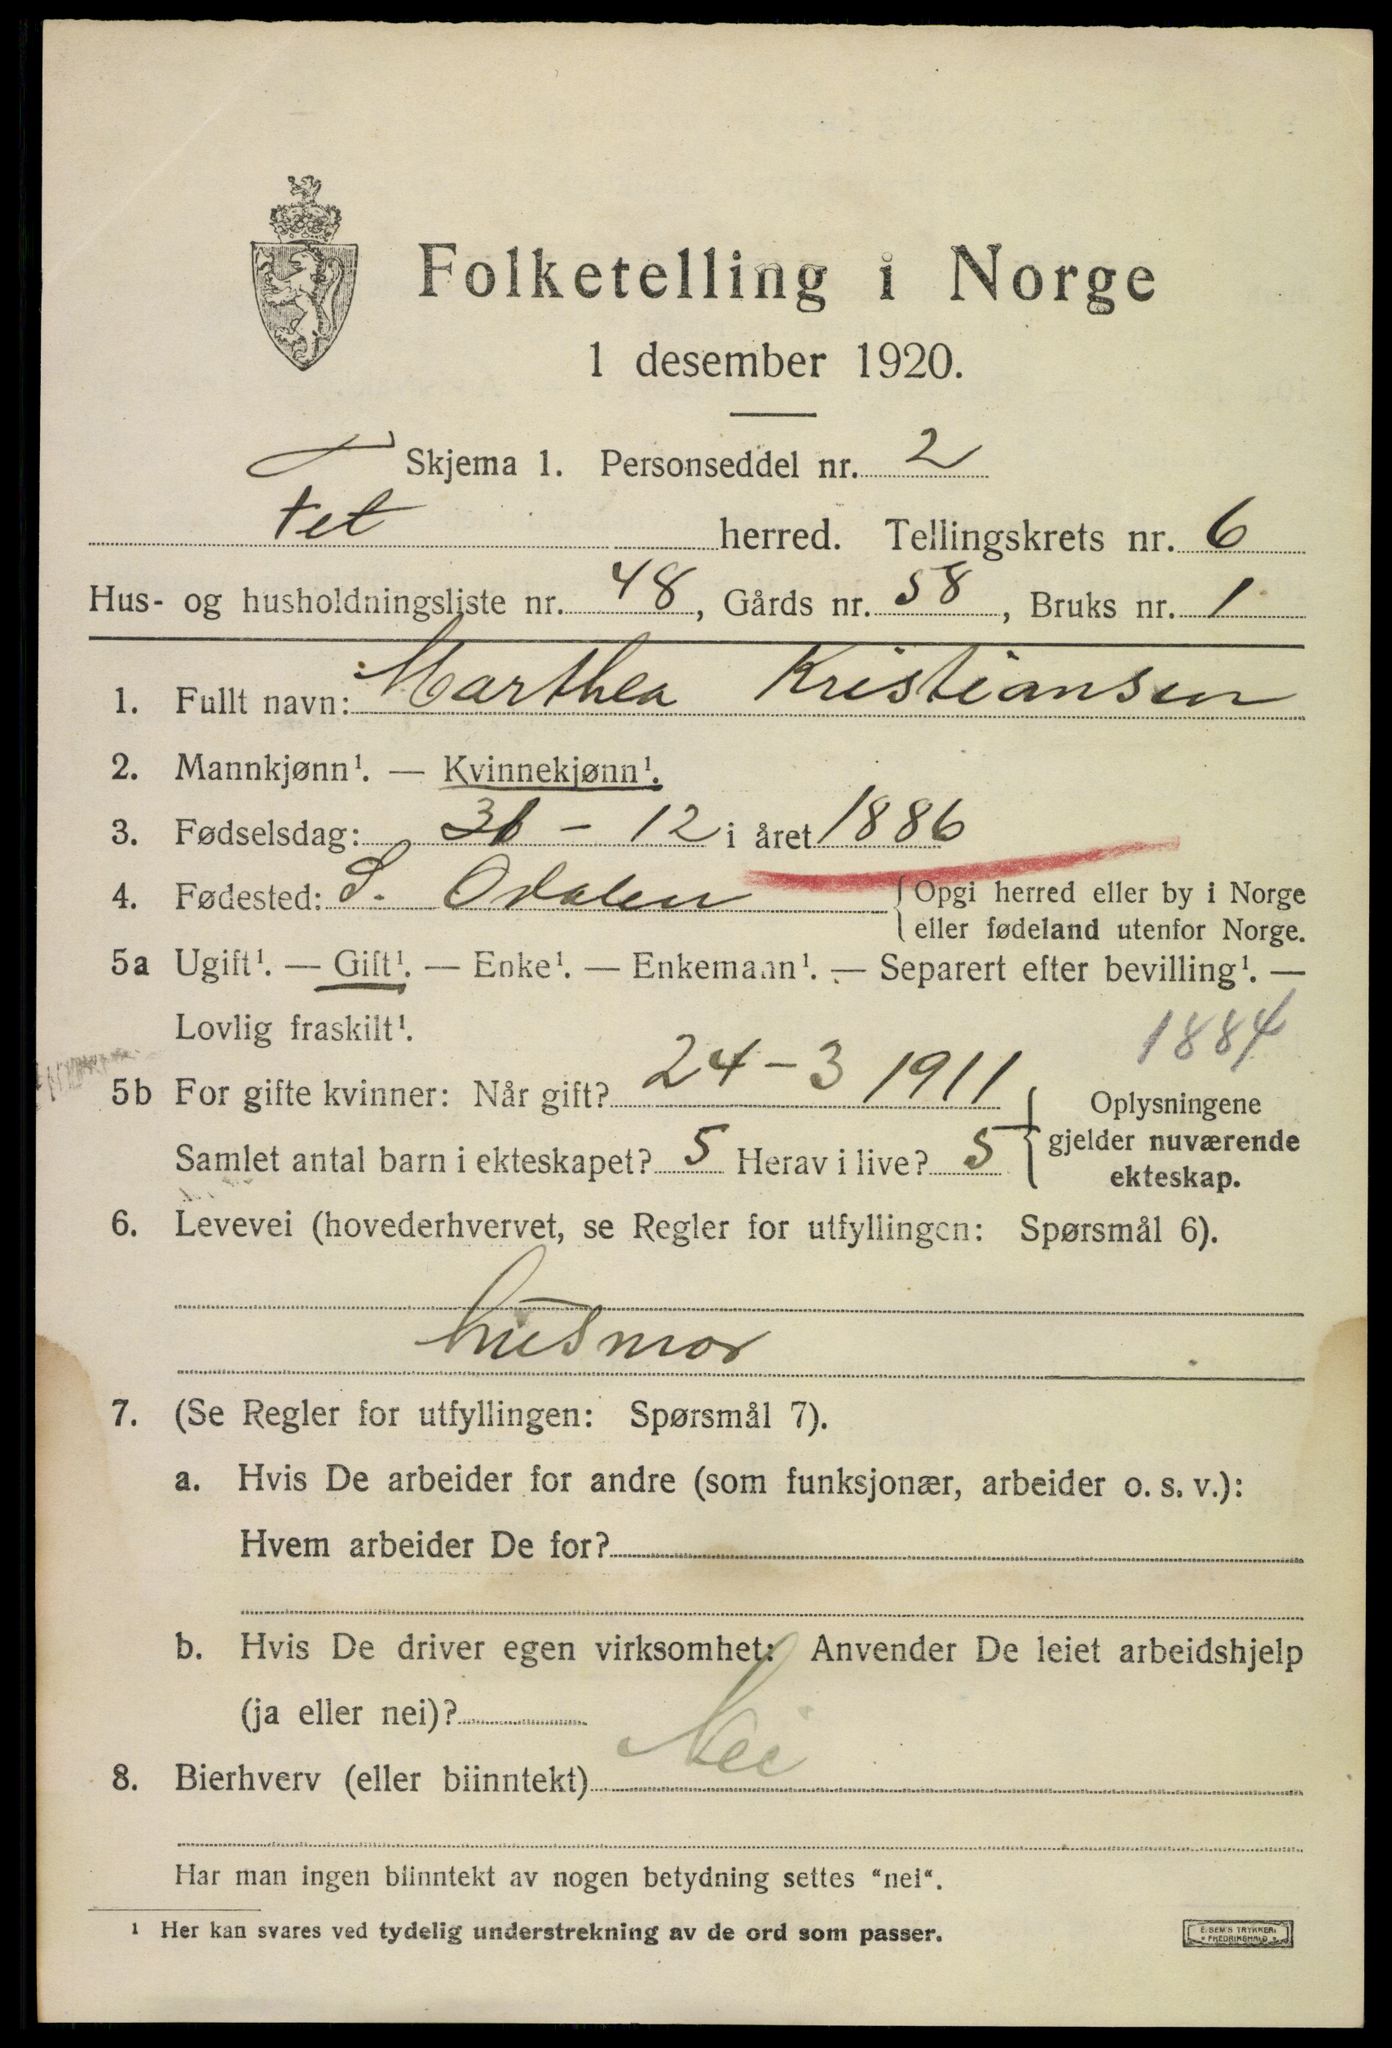 Folketelling i Norge
1 desember 1920.
Skjema 1. Personseddel nr. 2
Fet herred. Tellingskrets nr. 6
Hus- og husholdningsliste nr. 48, Gårds nr. 58, Bruks nr. 1
1. Fullt navn: Marthea Kristiansen
2. Mannkjønn¹. — Kvinnekjønn¹.
3. Fødselsdag: 31 - 12 i året 1886
4. Fødested: S. Odalen {Opgi herred eller by i Norge
eller fødeland utenfor Norge.
5a Ugift¹. — Gift¹. — Enke¹. — Enkemann¹. — Separert efter bevilling¹. —
Lovlig fraskilt¹.
1884
5b For gifte kvinner: Når gift? 24-3 1911
Samlet antal barn i ekteskapet? 5 Herav i live? 5
Oplysningene
gjelder nuværende
ekteskap.
6. Levevei (hovederhvervet, se Regler for utfyllingen: Spørsmål 6).
husmor
7. (Se Regler for utfyllingen: Spørsmål 7).
a. Hvis De arbeider for andre (som funksjonær, arbeider o. s. v.):
Hvem arbeider De for?
b. Hvis De driver egen virksomhet: Anvender De leiet arbeidshjelp
(ja eller nei)?
8. Bierhverv (eller biinntekt) Nei
Har man ingen biinntekt av nogen betydning settes "nei".
¹ Her kan svares ved tydelig understrekning av de ord som passer.
E. SEM'S TRYKKERI
FREDRIKSHALD